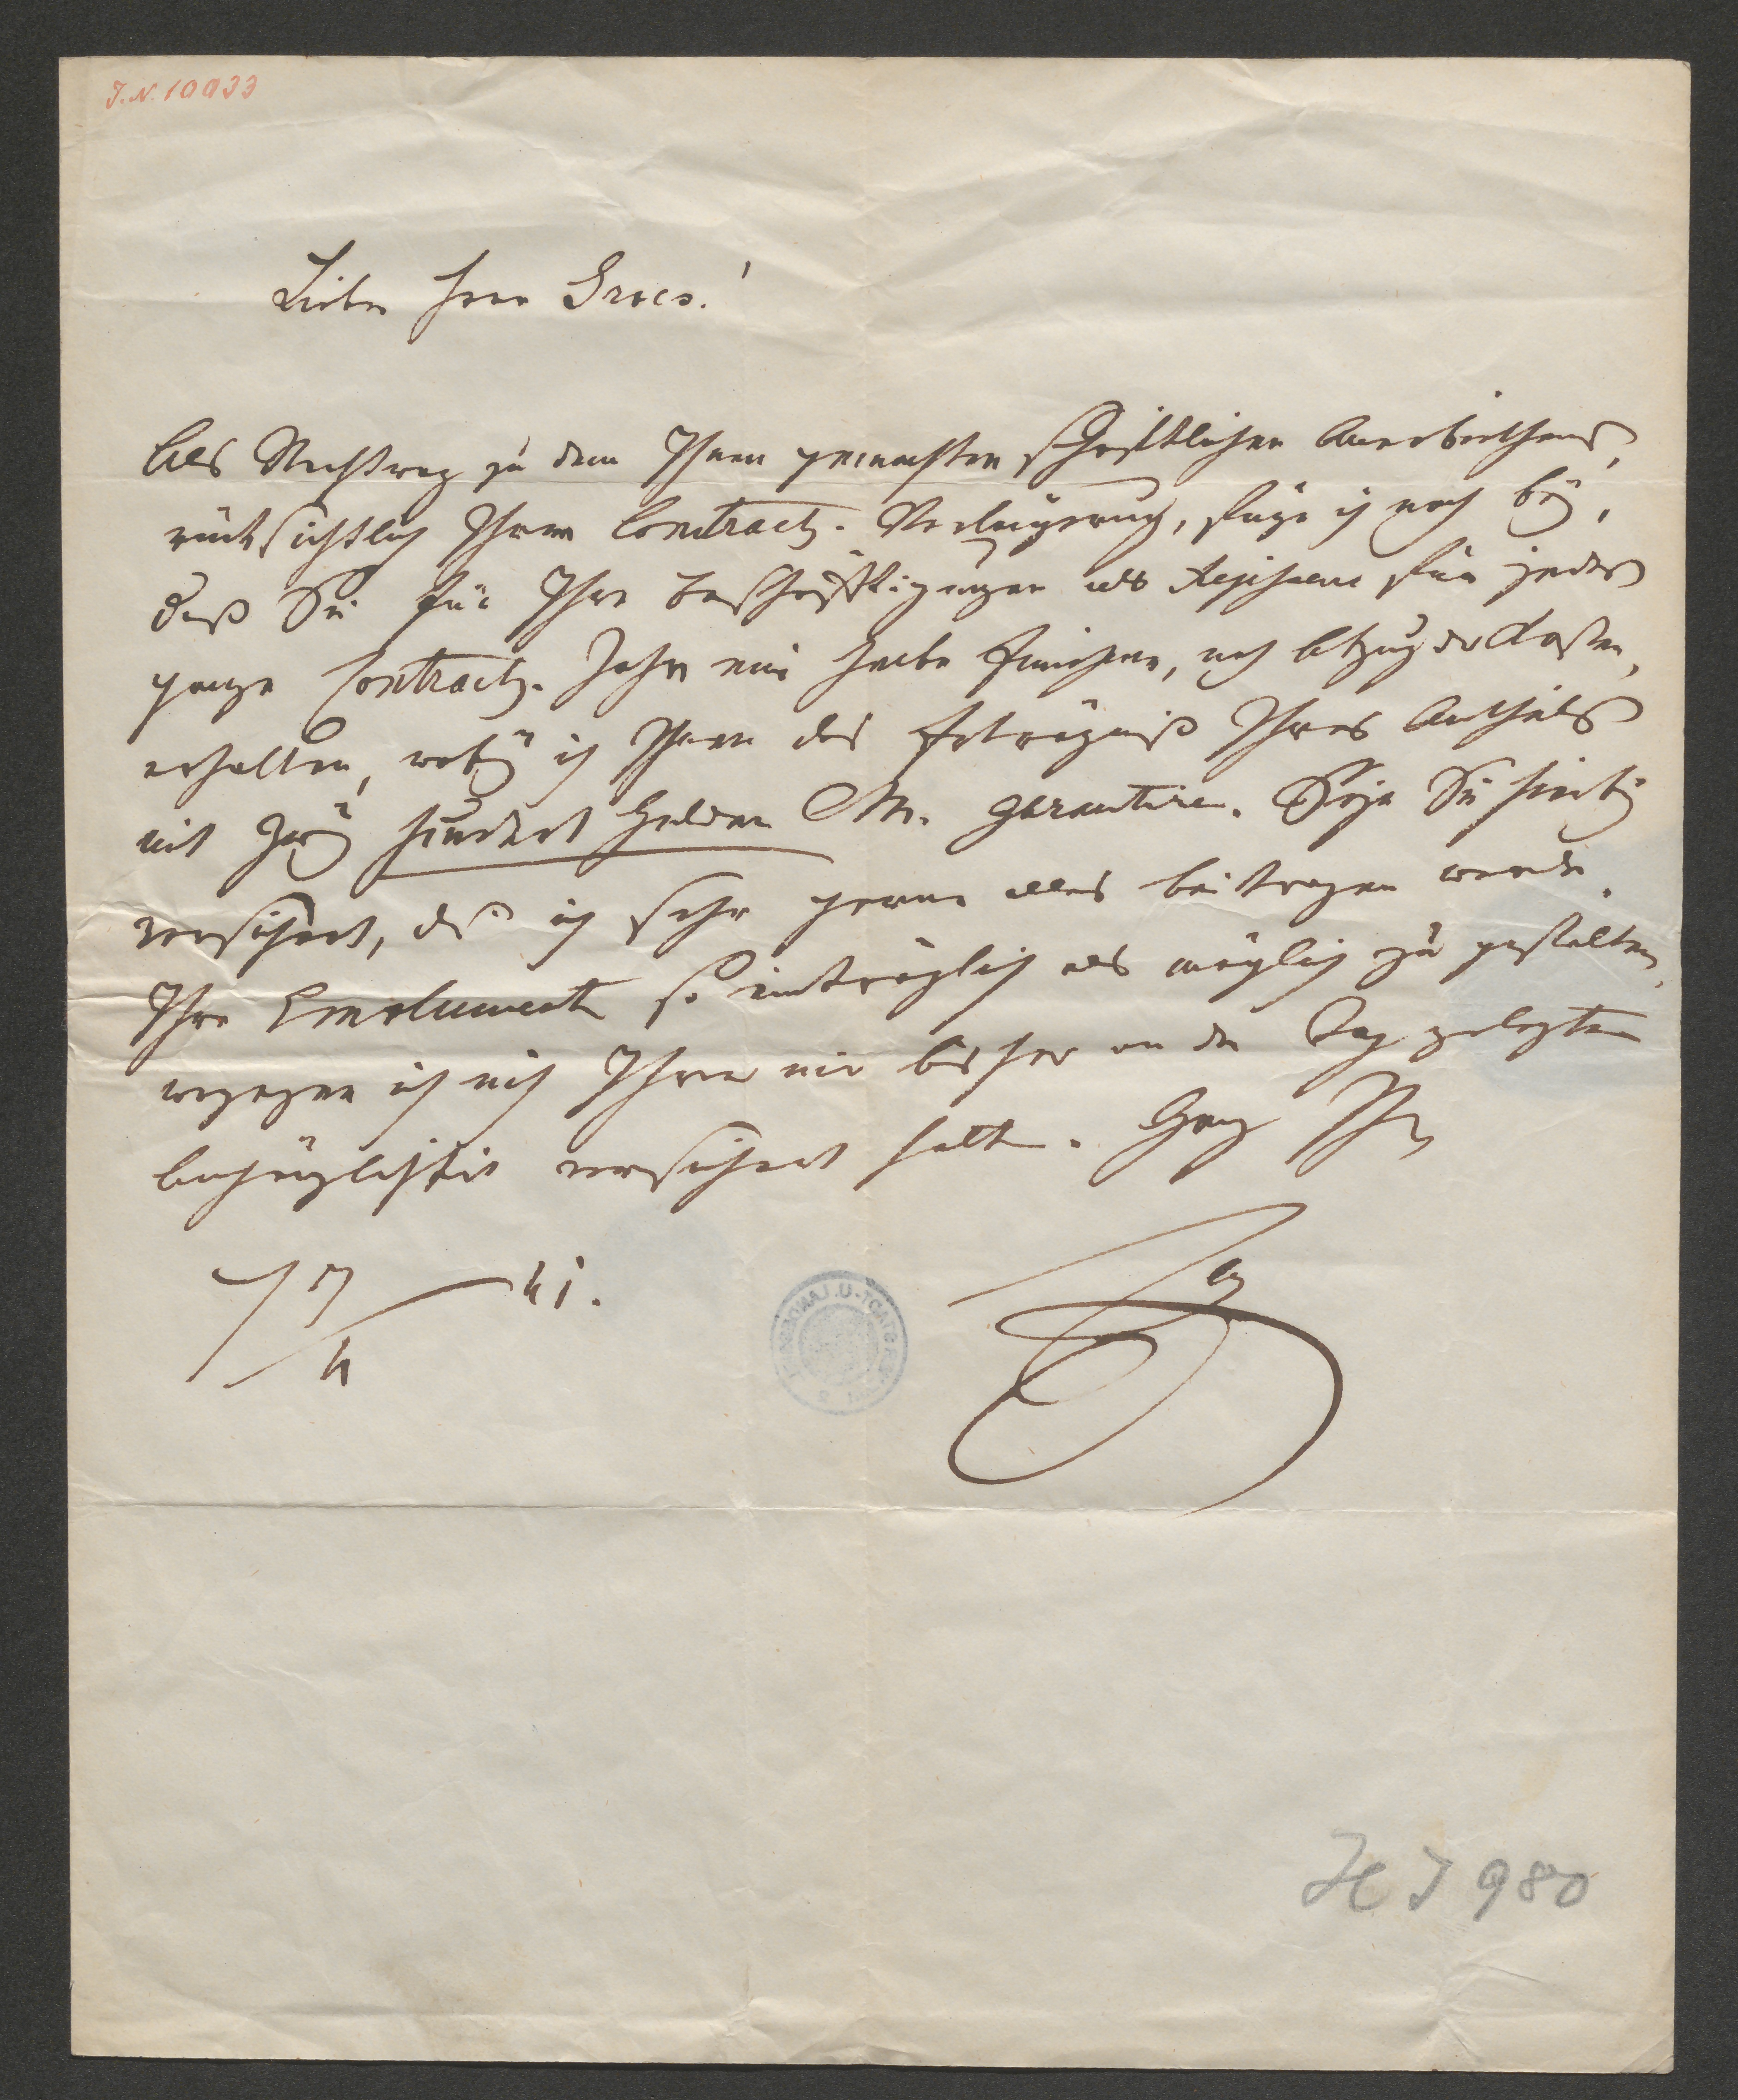 J.N. 10933
Lieber Herr Grois!
Als Nachtrag zu dem Ihnen gemachten schriftlichen Anerbiethens,
rücksichtlich Ihrer Contracts-Verlängerung, füge ich noch bey,
daß Sie für Ihre Beschäftigungen als Regisseur für jedes
ganze Contracts-Jahr eine halbe Einnahme, nach Abzug der Kosten,
erhalten, wobey ich Ihnen das Erträgniß Ihres Antheils
mit Zwey hundert Gulden CM. garantire. Seyn Sie hierbey
versichert, daß ich sehr gerne alles beitragen werde,
Ihre Emolumente so einträglich als möglich zu gestalten,
wogegen ich mich Ihrer mir bisher an den Tag gelegten
Anhänglichkeit versichert halte. Ganz Ihr
17/4 41.
H I 980